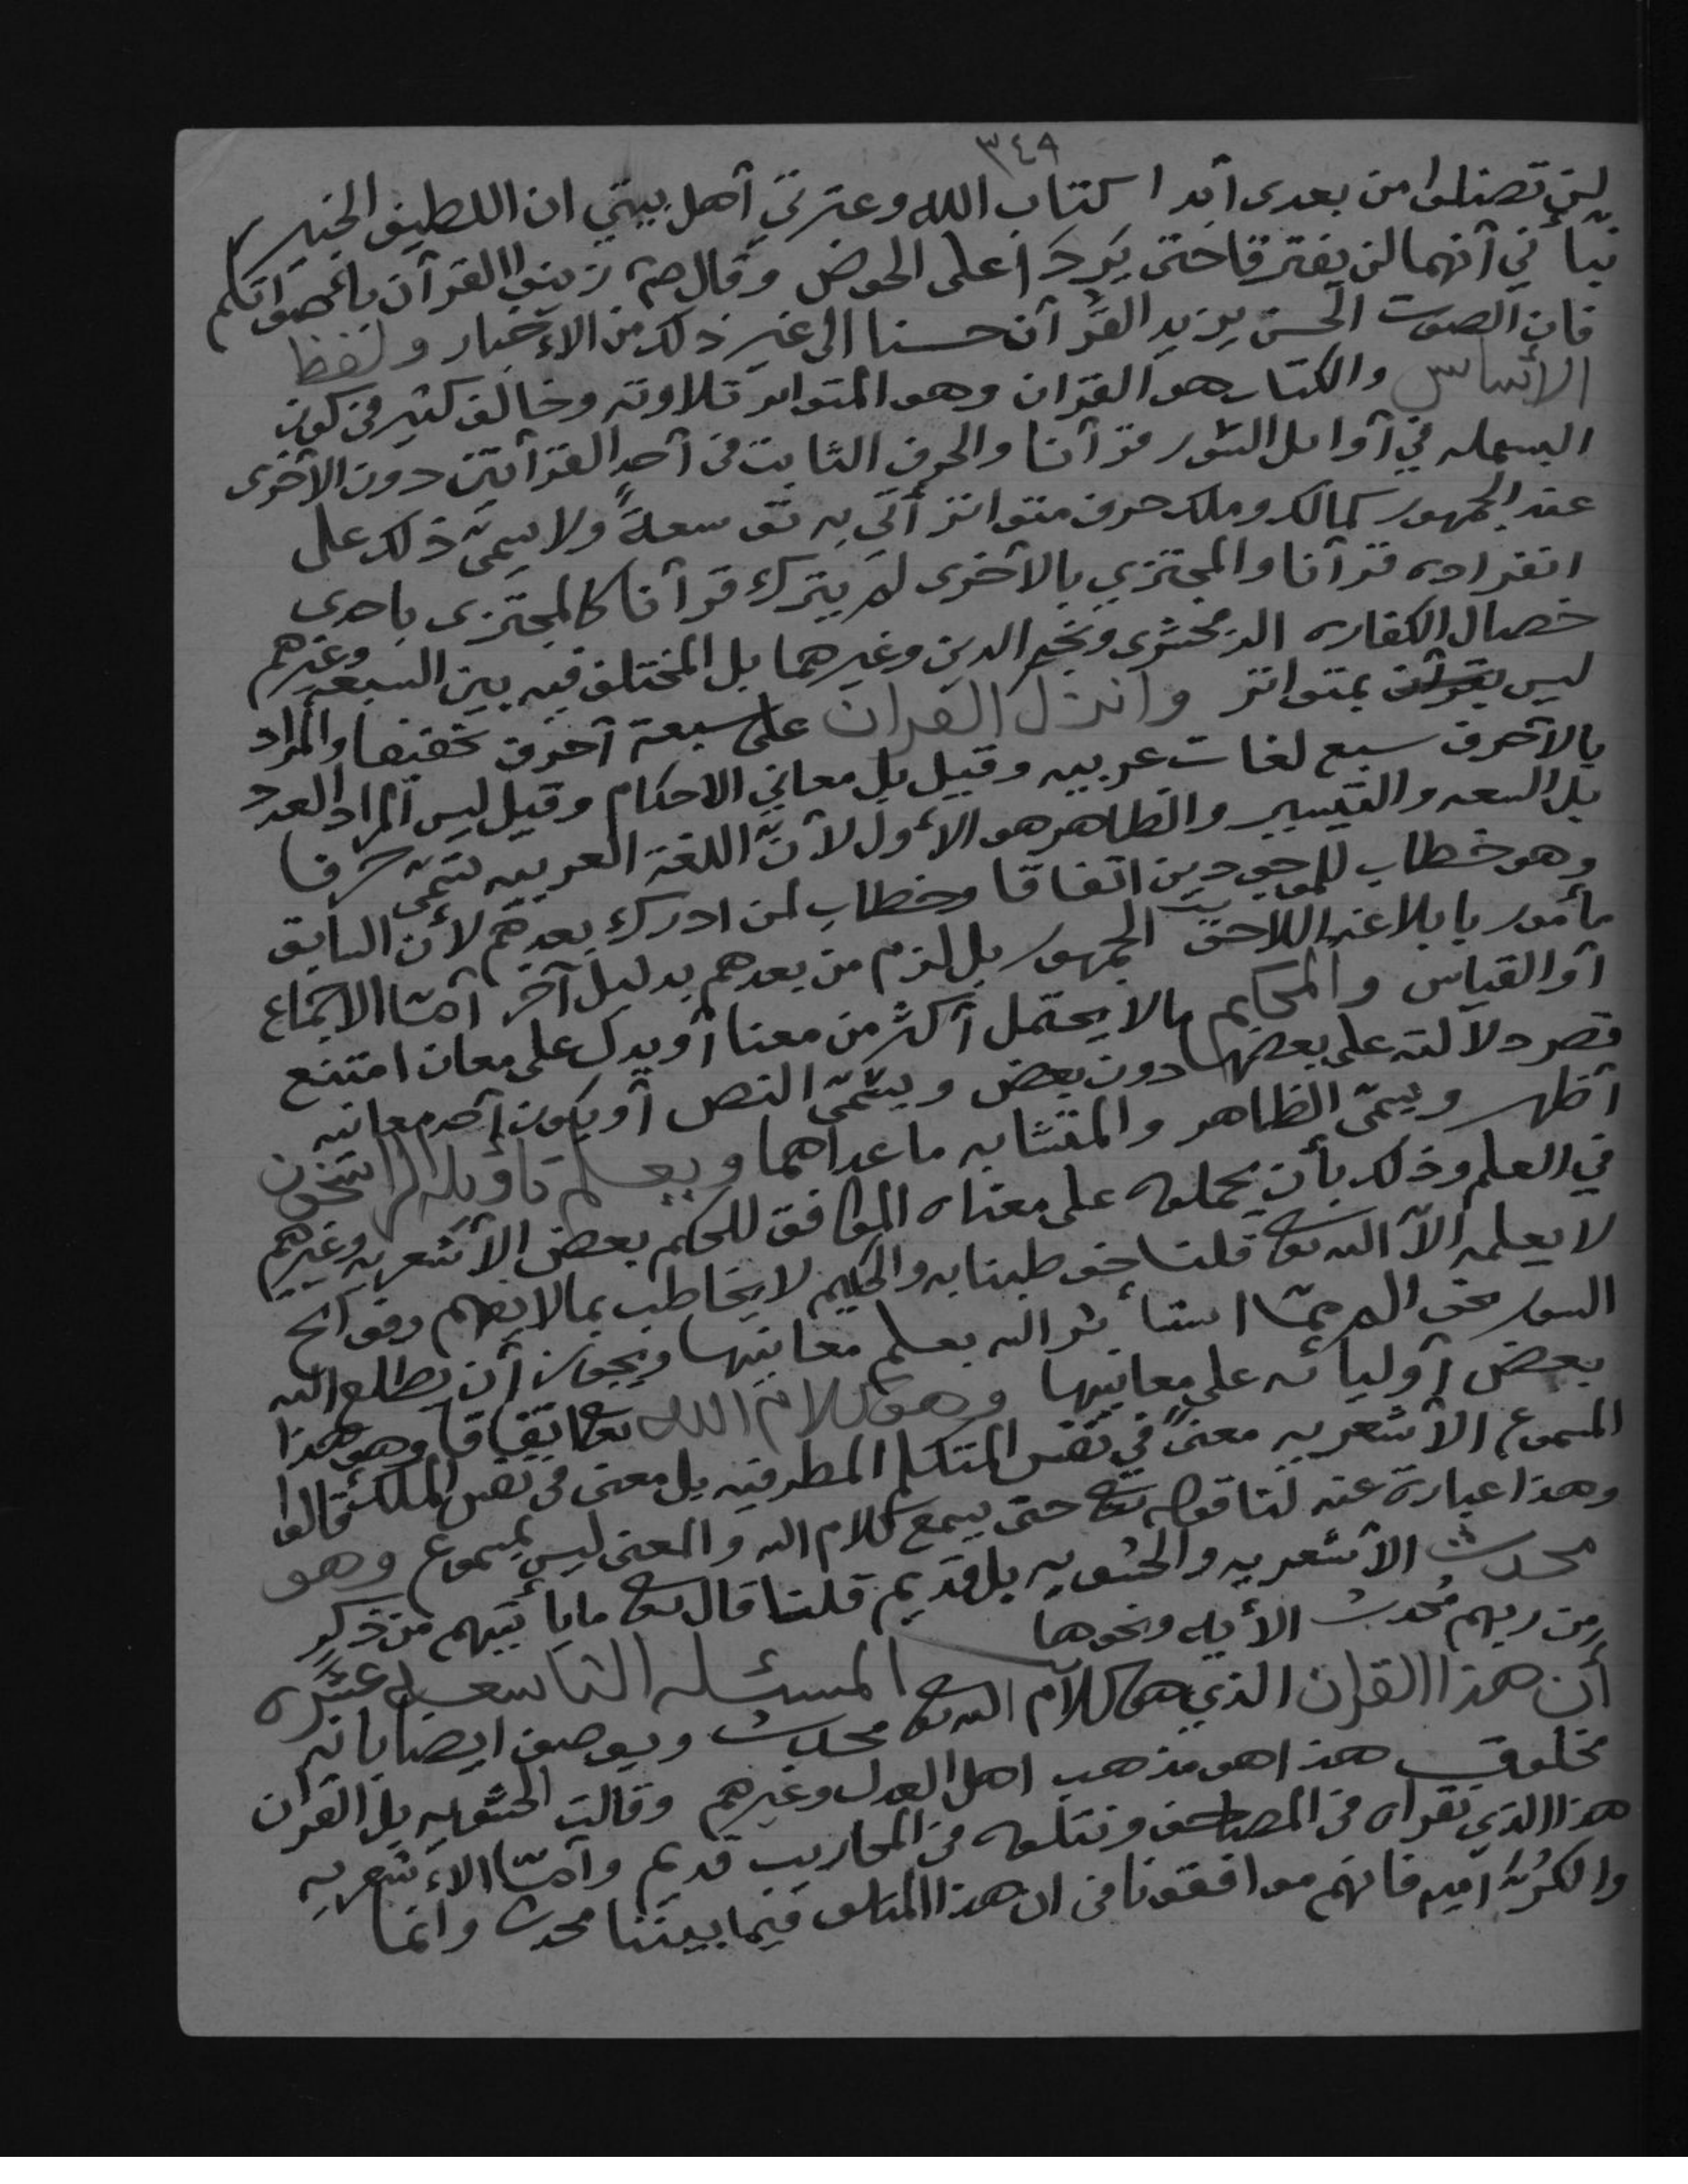 ٣٤٩
لن تضلوا من بعدى أبدا كتاب الله وعترتي أهل بيتي ان اللطيف الخبير
نبأني أنهما لن يفترقا حتى يردا على الحوض وقال صم زينوا القرآن بأصواتكم
فان الصوت الحسن يزيد القرآن حسنا الى غير ذلك من الأخبار ولفظ
الأساس والكتاب هو القران وهو المتواتر تلاوته وخالف كثير في كون
البسمله في أوائل السور قرآنا والحرف الثابت في أحد القرأتين دون الأخرى
عند الجمهور كمالك وملك حرف متواتر أتى به تق سعةً ولا يسمى ذلك على
انفراده قرآنا والمجتزي بالأخرى لم يترك قرآنا كالمجتزى باحدى
خصال الكفاره الزمخشرى ونجم الدين وغيرهما بل المختلف فيه بين السبعه وغيرهم
ليس بمتواتر وانزل القران على سبعة أحرف تخفيفا والمراد
بالأحرف سبع لغات عربيه وقيل بل معاني الاحكام وقيل ليس المراد العدد
بل السعه والتيسير والظاهر هو الأول لأنّ اللغة العربيه تسمّى حرفا
وهو خطاب للموجودين اتفاقا وخطاب لمن ادرك بعدهم لأن السابق
مأمور بابلاغه اللاحق الجمهور بل لزم من بعدهم بدليل آخر أمّا الاجماع
أو القياس والمحكم مالا يحتمل أكثر من معنا أو يدل على معان امتنع
قصر دلالته على بعضها دون بعض ويسمّى النص أو يكون أحد معانيه
أظهر ويسمّى الظاهر والمتشابه ما عداهما ويعلم تاويله الراسخون
في العلم وذلك بأن يحملوه على معناه الموافق للمحكم بعض الأشعريه وغيرهم
لا يعلمه الّا الله تع قلنا خوطبنا به والحكيم لا يخاطب بمالا يفهم وفواتح
السور نحو الم ممّا استأثر الله بعلم معانيها ويجوز أن يطلع الله
بعض أوليائه على معانيها وهو كلام الله تع اتفاقا وهو هذا
المسموع الأشعريه معنىً في نفس المتكلم المطرفيه بل معنى في نفس الملك قالوا
وهذا عبارة عنه لنا قوله تع حتى يسمع كلام الله والمعنى ليس بمسموع وهو
محدث الأشعريه والحشويه بل قديم قلنا قال تع ما يأتيهم من ذكرٍ
من ربهم مُحدث الأيه ونحوها
المسئله التاسعه عشره
أن هذا القران الذي هو كلام الله تع محدث ويوصف ايضا بانه
مخلوق هذا هو مذهب اهل العدل وغيرهم وقالت الحشويه بل القران
هذا الذي نقراه في المصاحف ونتلوه في المحاريب قديم وأمّا الأشعريه
والكرّاميه فانهم موافقونا في ان هذا المتلو فيما بيننا محدث وانما